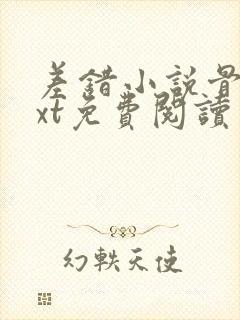 差錯小說最
xt免費閱讀
幻軼天使